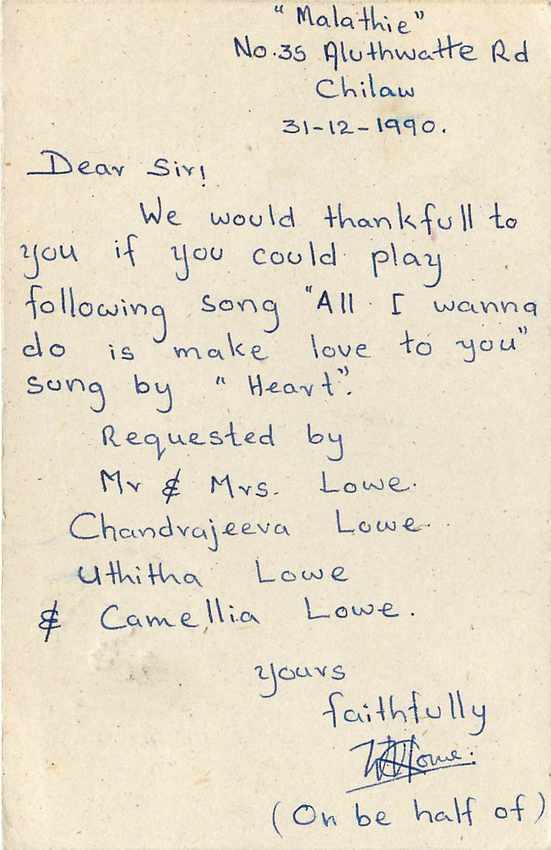 "Malathie"
No.35 Aluthwatte Rd
Chilaw
31-12-1990.
Dear Sir!
We would thankfull to
you if you could play
following song "All I wanna
do is make love to you"
sung by "Heart".
Requested by
Mr & Mrs. Lowe.
Chandrajeeva Lowe.
Uthitha Lowe
& Camellia Lowe.
yours
faithfully
(On be half of)